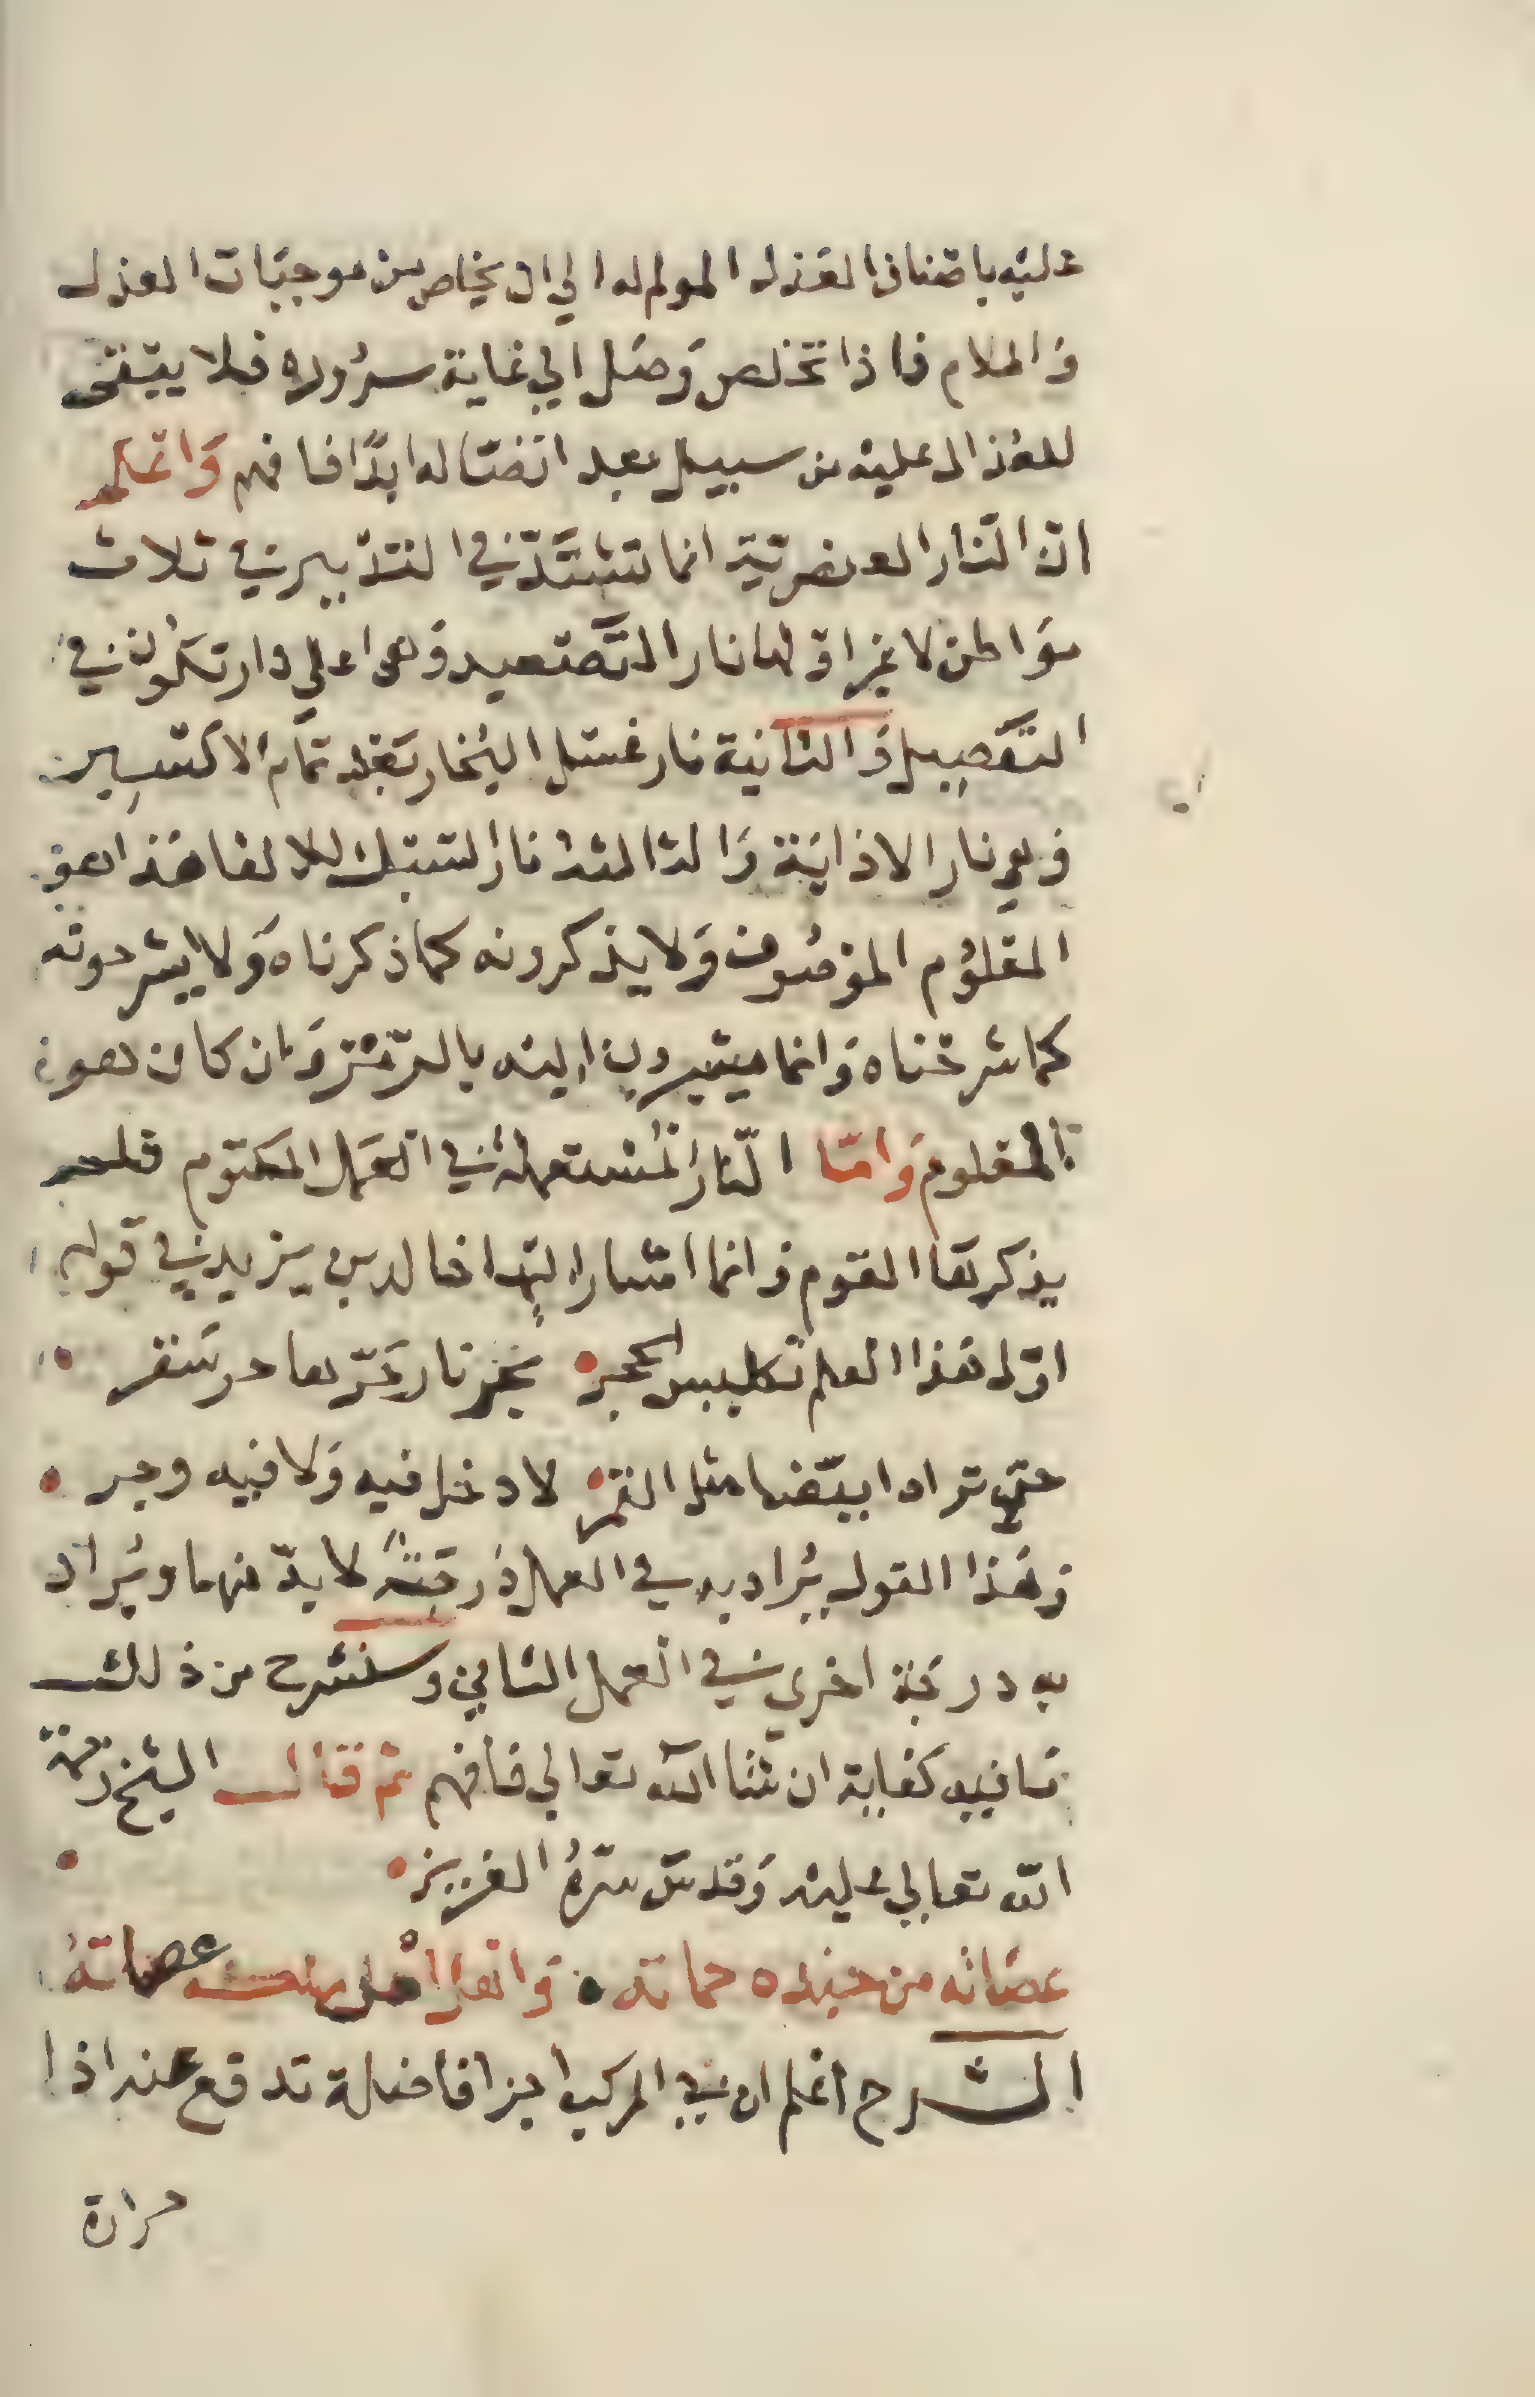 عليه باصناف العذل المولم له الي ان يخلص من موجبات العذل
والملام فاذا تخلص وصل الي غاية سروره فلا يبقي
للعذال عليه من سبيل بعد اتصاله ابدًا فافهم واعلم
ان النار العنصرية انما تشتد في التدبير في ثلاث
مواطن لا غير اولها نار التصعيد وهي اعلي وار تكون في
التفصيل والثانية نار غسل البخار بعد تمام الاكسير
وهي نار الاذابة والثالثة نار السبك للالغا هذا هو
المعلوم الموصوف ولا يذكرونه كما ذكرناه ولا يشرحونه
كما شرحناه وانما يشيرون اليه بالرمز وان كان هو
المعلوم واما النار المستعملة في العمل المكتوم فلم
يذكرها القوم وانما اشار اليها خالد بن يزيد في قوله
اول هذا العلم تكليس الحجر بحر نار حرها حر سقر
حتي تراه ابيضا مثل القمر لا دخل فيه ولا فيه وجر
وهذا القول يراد به في العمل درجة لا بد منها ويراد
به درجة اخري في العمل الثاني وسنشرح من ذلك
ما فيه كفاية ان شا الله تعالي فافهم ثم قال الشيخ رحمة
الله تعالي عليه وقدس سره العزيز
عصاته من جنده حماته وانما اهل عصاته
الشرح اعلم ان في المركب اجزا فاضلة تدفع عنه اذا
حرارة